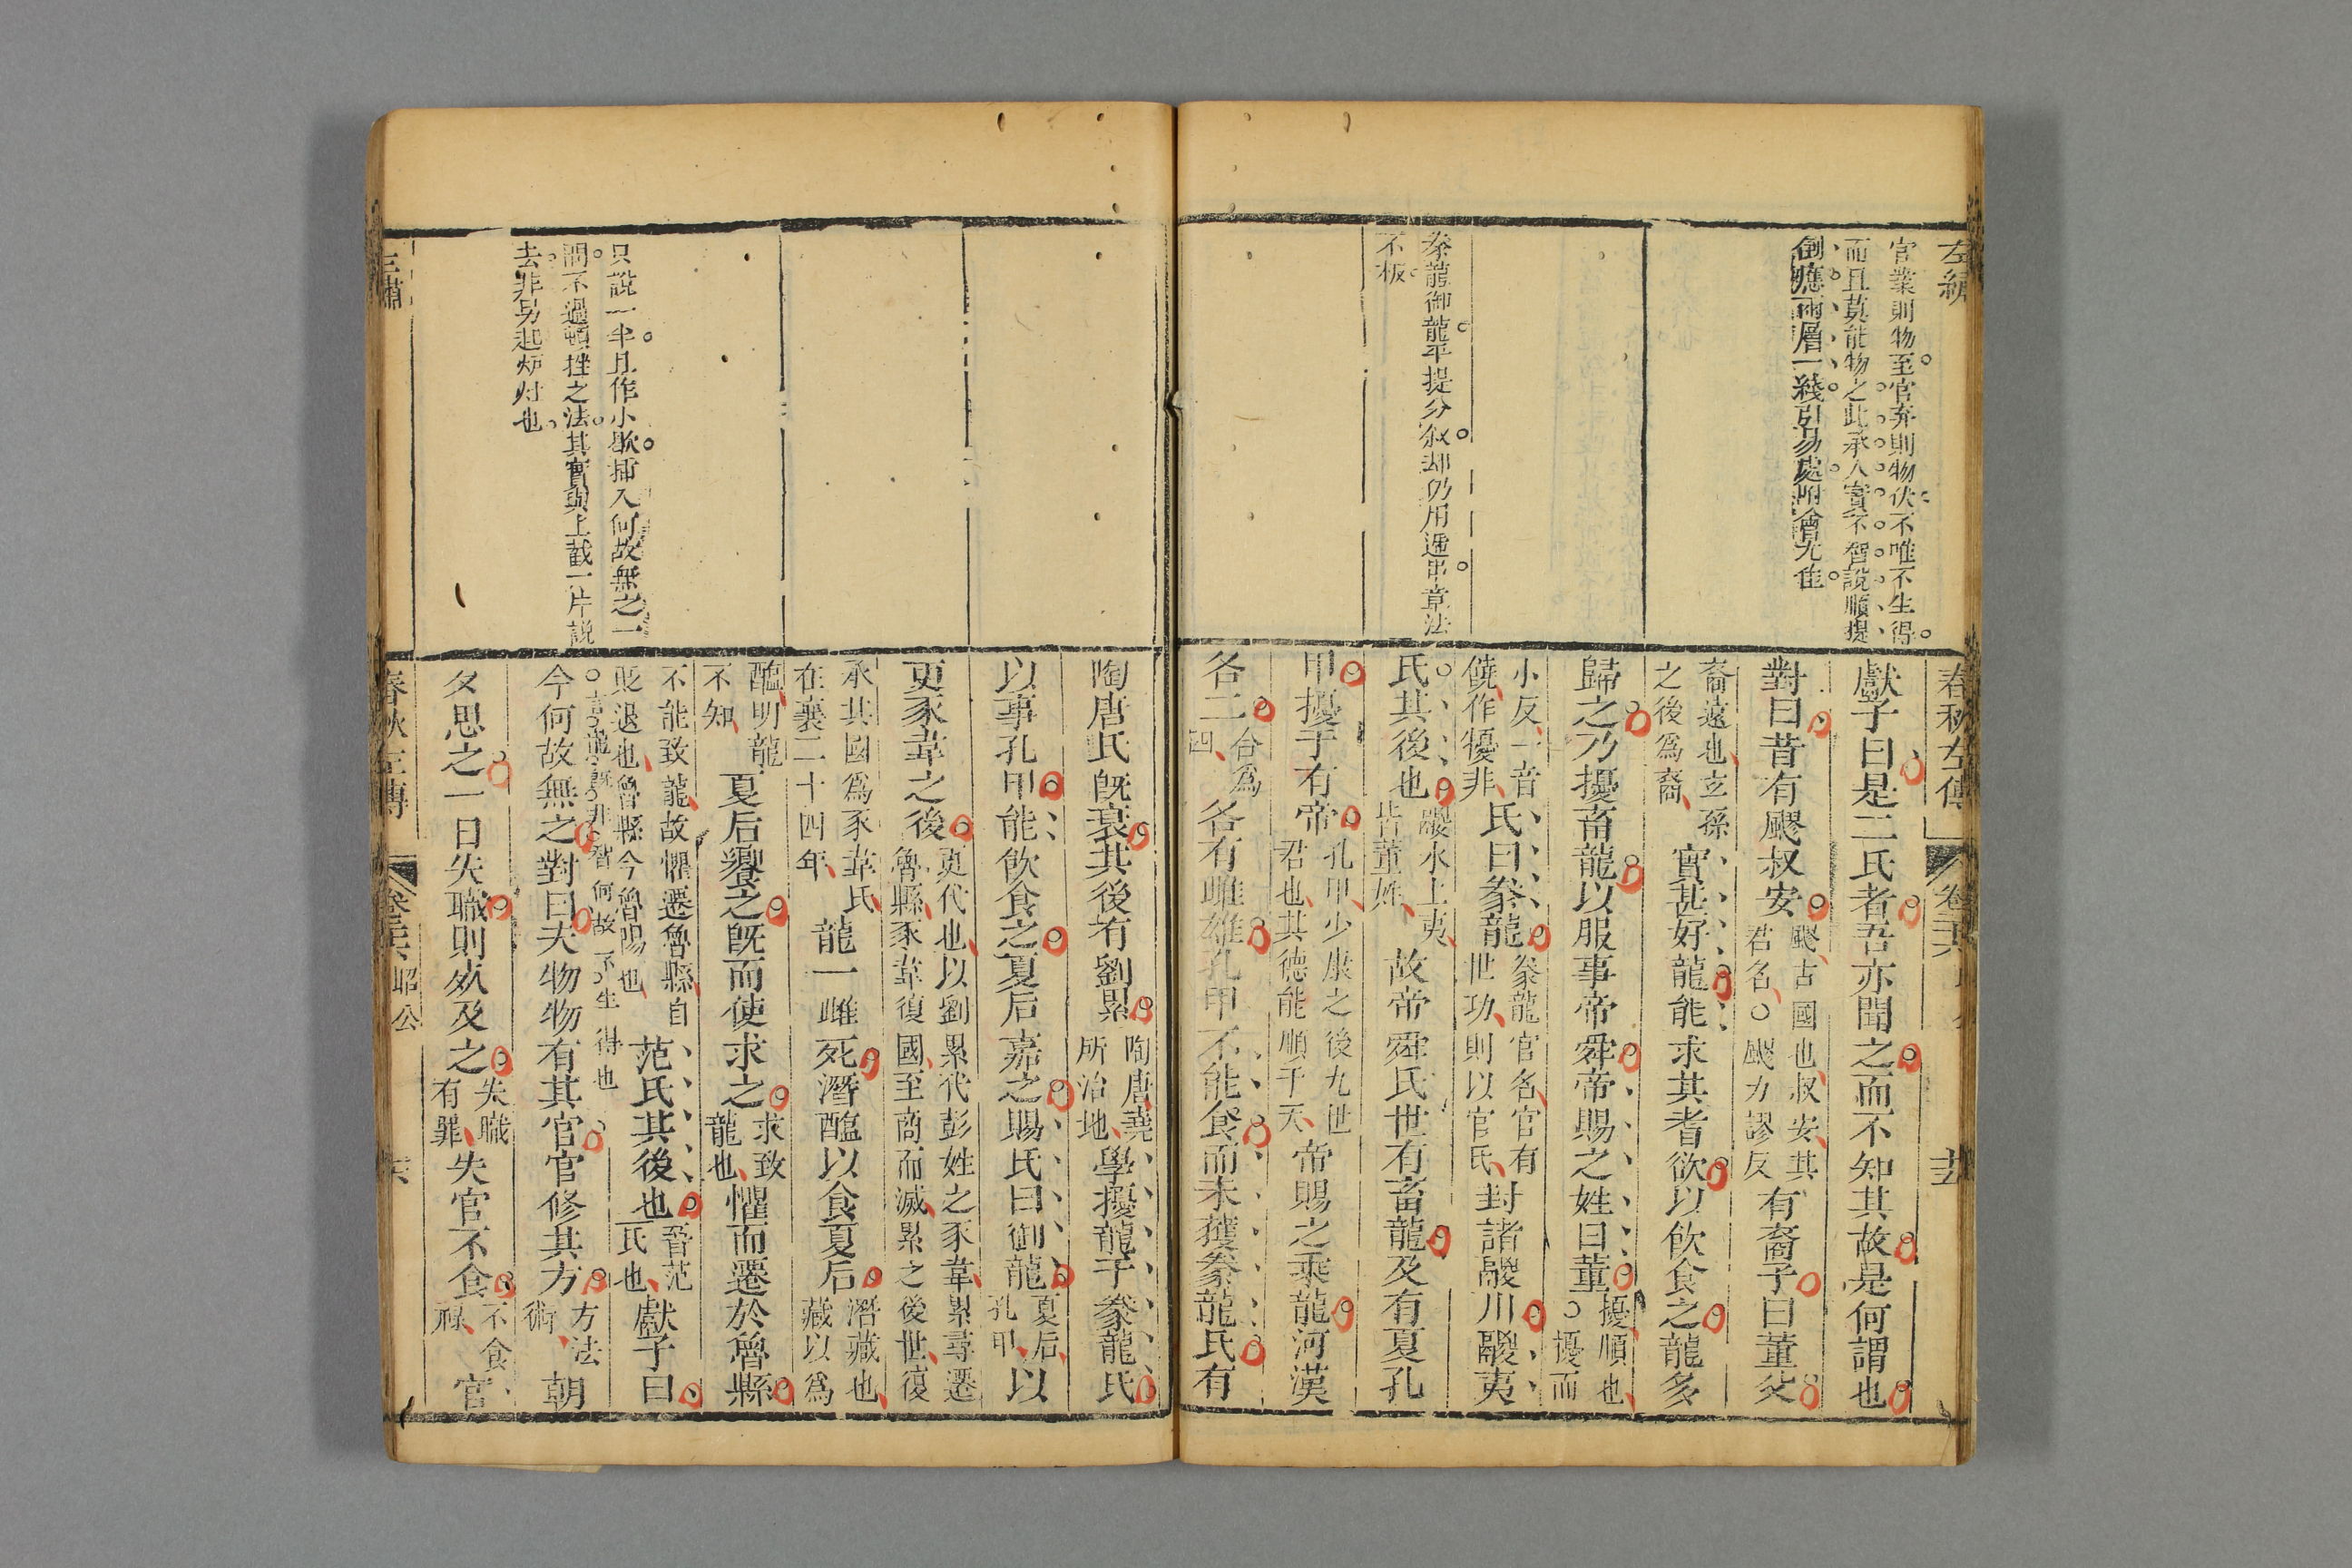 左繡
官業則物至官弃則物伏不唯不生得
而且莫能物之此承人實不智說順提
倒應兩層一綫引易處附會尤佳
豢龍御龍平提分敘却仍用遞串章法
不板
春秋左傳
獻子曰是二氏者吾亦聞之而不知其故是何謂也
對曰昔有飂叔安飂古國也叔安其君名○飂力謬反有裔子曰董父
裔遠也玄孫之後爲裔實甚好龍能求其耆欲以飲食之龍多
歸之乃擾畜龍以服事帝舜帝賜之姓曰董擾順也○擾而
小反一音饒作犪非氏曰豢龍豢龍官名官有世功則以官氏封諸鬷川鬷夷
氏其後也鬷水上夷皆董姓故帝舜氏世有畜龍及有夏孔
甲擾于有帝孔甲少康之後九世君也其德能順于天帝賜之乘龍河漢
各二合爲四各有雌雄孔甲不能食而未獲豢龍氏有
陶唐氏旣衰其後有劉累陶唐堯所治地學擾龍于豢龍氏
以事孔甲能飲食之夏后嘉之賜氏曰御龍夏后孔甲以
更豕韋之後更代也以劉累代彭姓之豕韋累尋遷魯縣豕韋復國至商而滅累之後世復
承其國爲豕韋氏在襄二十四年龍一雌死潛醢以食夏后潛藏也藏以爲
醢明龍不知夏后饗之旣而使求之求致龍也懼而遷於魯縣
不能致龍故懼遷魯縣自貶退也魯縣今魯陽也范氏其後也晉范氏也獻子曰
○言龍旣非智何故不生得也
今何故無之對曰夫物物有其官官修其方方法術朝
夕思之一日失職則死及之失職有罪失官不食不食祿官
只說一半且作小歇插入何故無之一
問不過頓挫之法其實與上截一片說
去非另起炉灶也
左繡
春秋左傳
昭公